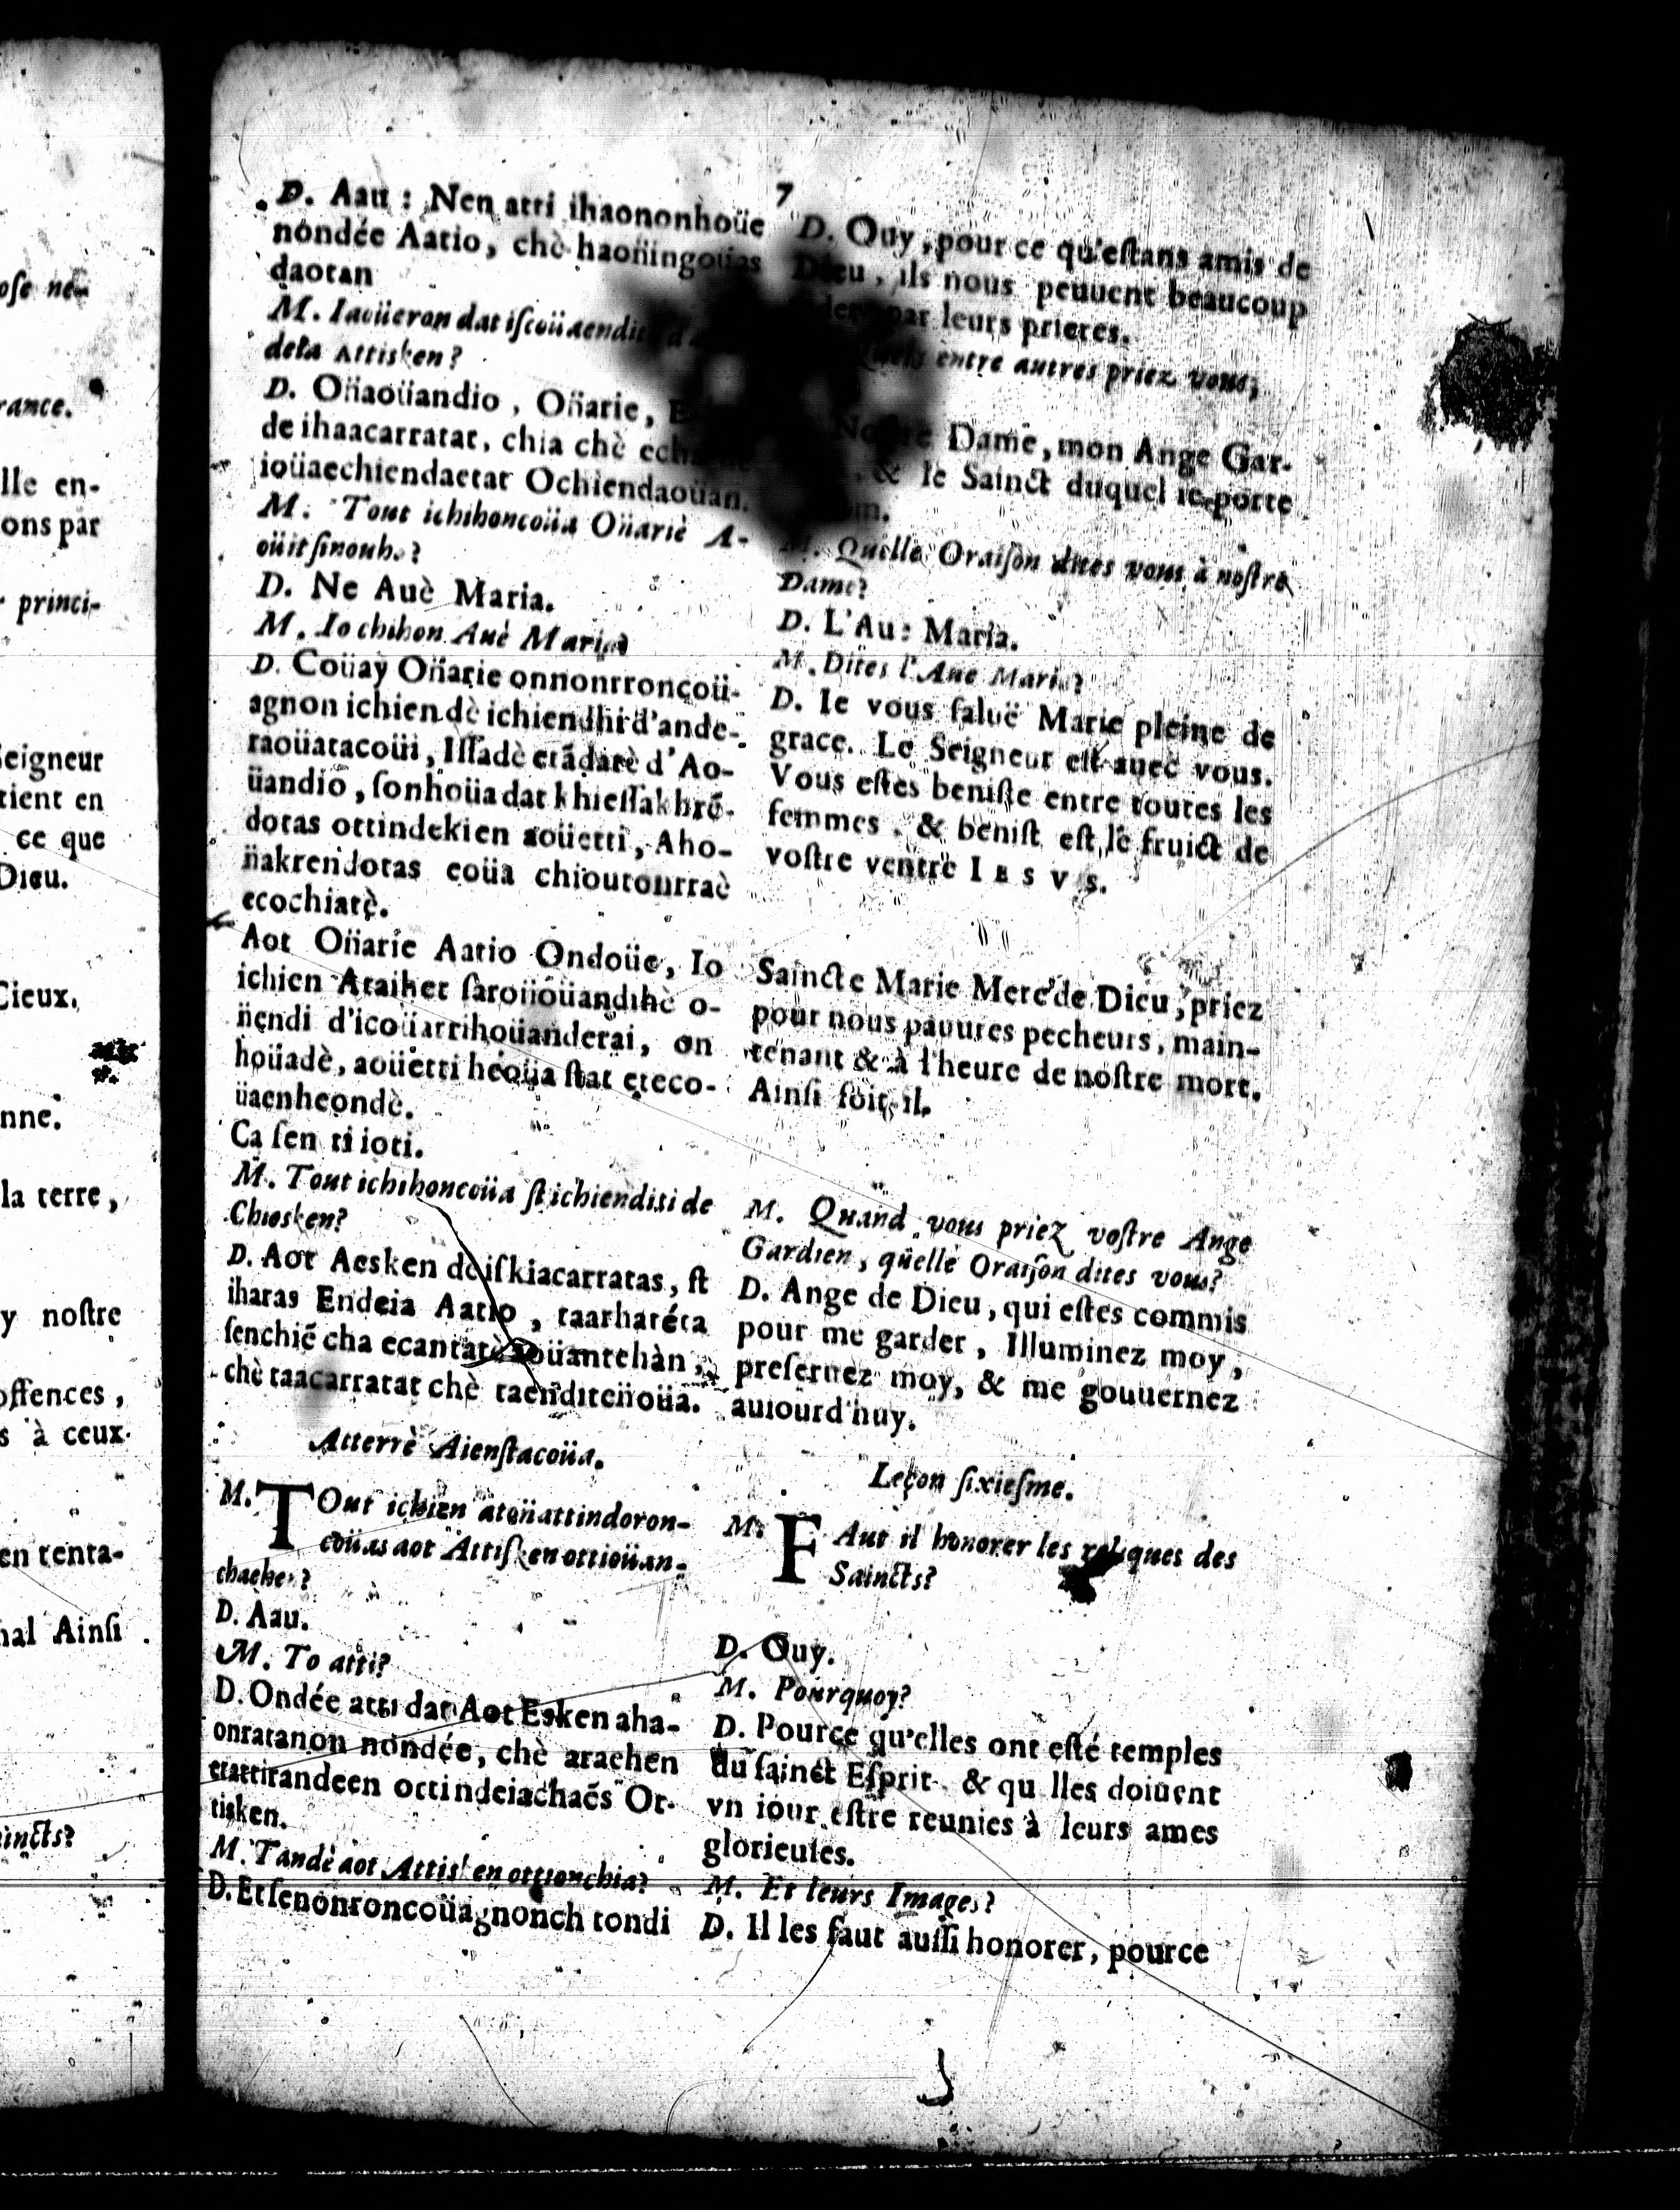 7
D. Aau : Nen atti ihaononhoüe
nondée Aatio, chè haoñingoüas
daotan
M. Iaoüeron dat iſcoüaendit
deta Attisken?
D. Oñaoüandio, Oñarie,
de ihaacarratat, chia chè
ioüaechiendaetat Ochiendaoüan.
M. Tout ichihoncoüa Oñariè A-
oüitſinouh ?
D. Ne Auè Maria.
M. Io chihon Auè Maria?
D. Coüay Oñarie onnonrronçoü-
agnon ichien dè ichiendhi d'ande-
raoüatacoüi, Iſſadè etãdatè d'Ao-
üandio, ſonhoüa dat khieſſakhrõ-
dotas ottindekien aoüetti, Aho-
ñakrendotas eoüa chioutonrraè
ecochiatè.
Aot Oñarie Aatio Ondoüe, Io
ichien Ataihet ſaroñoüandihè o-
ñendi d'icoüarrihoüanderai, on
hoüadè, aoüetti héoüa ſtat eteco-
üaenheondè.
Ca ſen ti ioti.
M. Tout ichihoncoüa ſt ichienditi de
Chiesken?
D. Aot Aesken de iſkiacarratas, ſt
iharas Endeia Aatio, taarhatéta
ſenchiẽ cha ecantatè aoüantehàn,
chè taacarratat chè taenditeñoüa.
Atterrè Aienſtacoüa.
M. TOut ichien atoñattindoron-
coüas aot Attiſken ottioüan-
chaehe ?
D. Aau.
M. To atti?
D. Ondée atti dat Aot Esken aha-
onratanon nondée, chè araehen
etattirandeen ottindeiachaẽs Ot-
tisken.
M. Tandè aot Attisken ottionchia?
D. Etſenonroncoüagnonch tondi
D. Ouy, pour ce qu'eſtans amis de
Dieu, ils nous peuuent beaucoup
par leurs prieres.
entre autres priez vous,
Noſtre Dame, mon Ange Gar-
, & le Sainct duquel ie porte
M. Quelle Oraiſon dites vous à noſtre
Dame?
D. L'Aue Maria.
M. Dites l'Aue Maria?
D. Ie vous ſaluë Marie pleine de
grace. Le Seigneur eſt auec vous.
Vous eſtes beniſte entre toutes les
femmes, & beniſt eſt le fruict de
voſtre ventre IESVS.
Saincte Marie Mere de Dieu, priez
pour nous pauures pecheurs, main-
tenant & à l'heure de noſtre mort.
Ainſi ſoit-il.
M. Quand vous priez voſtre Ange
Gardien, quelle Oraiſon dites vous?
D. Ange de Dieu, qui eſtes commis
pour me garder, Illuminez moy,
preſeruez moy, & me gouuernez
auiourd'huy.
Leçon ſixieſme.
M. FAut il honorer les reliques des
Saincts?
D. Ouy.
M. Pourquoy?
D. Pource qu'elles ont eſté temples
du ſainct Eſprit & qu lles doiuent
vn iour eſtre reunies à leurs ames
glorieuſes.
M. Et leurs Images?
D. Il les faut auſſi honorer, pource
oſe ne-
rance.
lle en-
ons par
princi-
Seigneur
tient en
ce que
Dieu.
Cieux.
nne.
la terre,
y noſtre
offences,
s à ceux
en tenta-
nal Ainſi
incts?